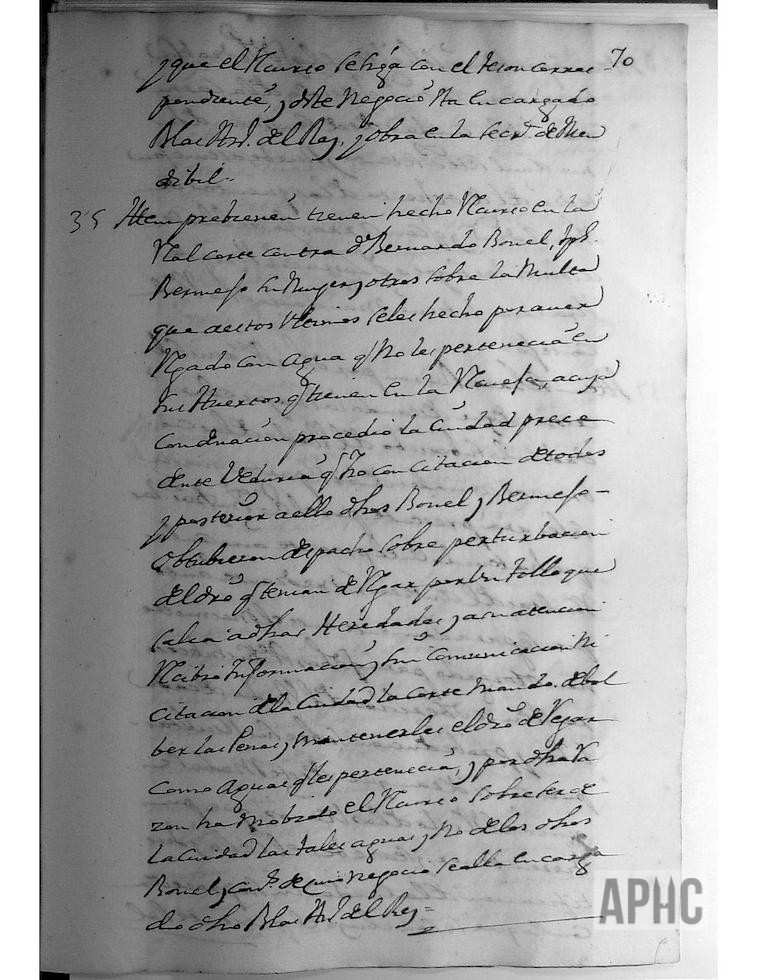 70
y que el Recurso se siga con el teson corres-
pondiente, y deste negocio sta encargado
Blas Ant. del Rey, y obra en la Secr.ª de Men
dibil.
35 Item previenen tienen hecho Recurso en la
Real corte contra Dn Bernardo Bonel, Jph.
Bermejo su Muger y otros sobre la Multa
que a estos Ultimos se les hecho por aver
Regado con agua q no les pertenecia en
sus Huertos q tienen en la a cuya
condenacion procedio la Ciudad prece
dente Veduria q hizo con citacion de todos
y posterior a ello dhos Bonel y Bermejo -
obtubieron despacho sobre perturbacion
del dro q tenian de Regar por un follo que
salia a dhas Heredades y a su atencion
Recibio Informacion, y sin comunicacion ni
citacion de la Ciudad la corte mando debol
ber las Penas y mantenerles el dro de Regar
como aguas q les pertenecia, y por dha Ra
zon ha mobido el Recurso sobre ser de
la Ciudad las tales aguas y no de los dhos
Bonel, y de cuio negocio se alla encarga
do dho Blas Ant. del Rey =
APHC